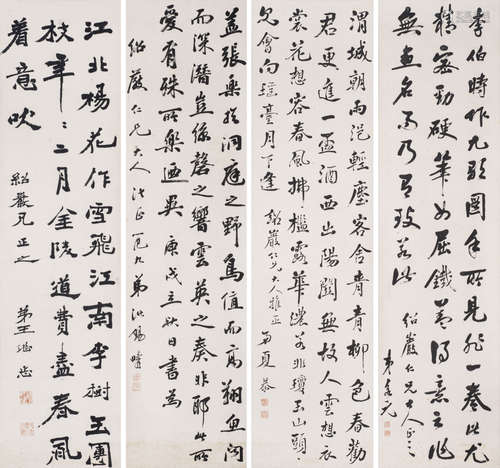 李伯時作九歌圖余所見非一卷此尤
精密勁硬筆如屈鐵蓋得意之作
無畫名而乃有致若此
紹嚴仁兄大人正之
渭城朝雨浥輕塵客舍青青柳色春勸
君更進一盃酒西出陽關無故人雲想衣
裳花想容春風拂檻露華濃若非玉山頭
見會向瑤臺月下逢 紹嚴仁兄大人雅正 弟夏
蓋張樂於洞庭之野鳥值而高翔魚聞
而深潛豈絲磬之響雲英之奏非耶此所
愛有殊所樂迺異 庚戌立秋日書為
紹嚴仁兄大人法正 弟洪錫疇
江北楊花作雪飛江南李樹玉團
枝年〻二月金陵道費盡春風
着意吹
紹嚴兄正之 弟王